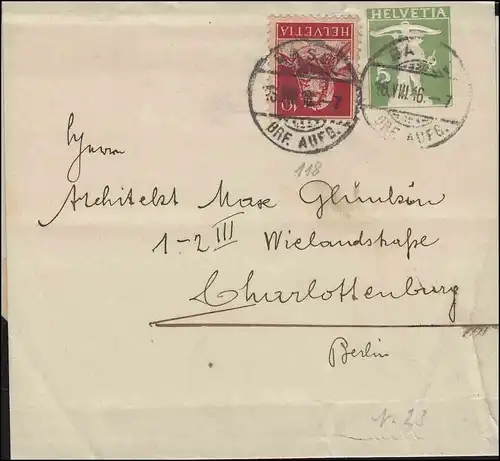 HELVETIA
10
HELVETIA
5
BAS
16.VIII.16.-7
BRF. AUFG.
BA
16.VIII.16.-7
BRF. AUFG.
118
Herrn
Architekt Max Glünkin
1-2 III Wielandstraße
Charlottenburg
Berlin
N. 23